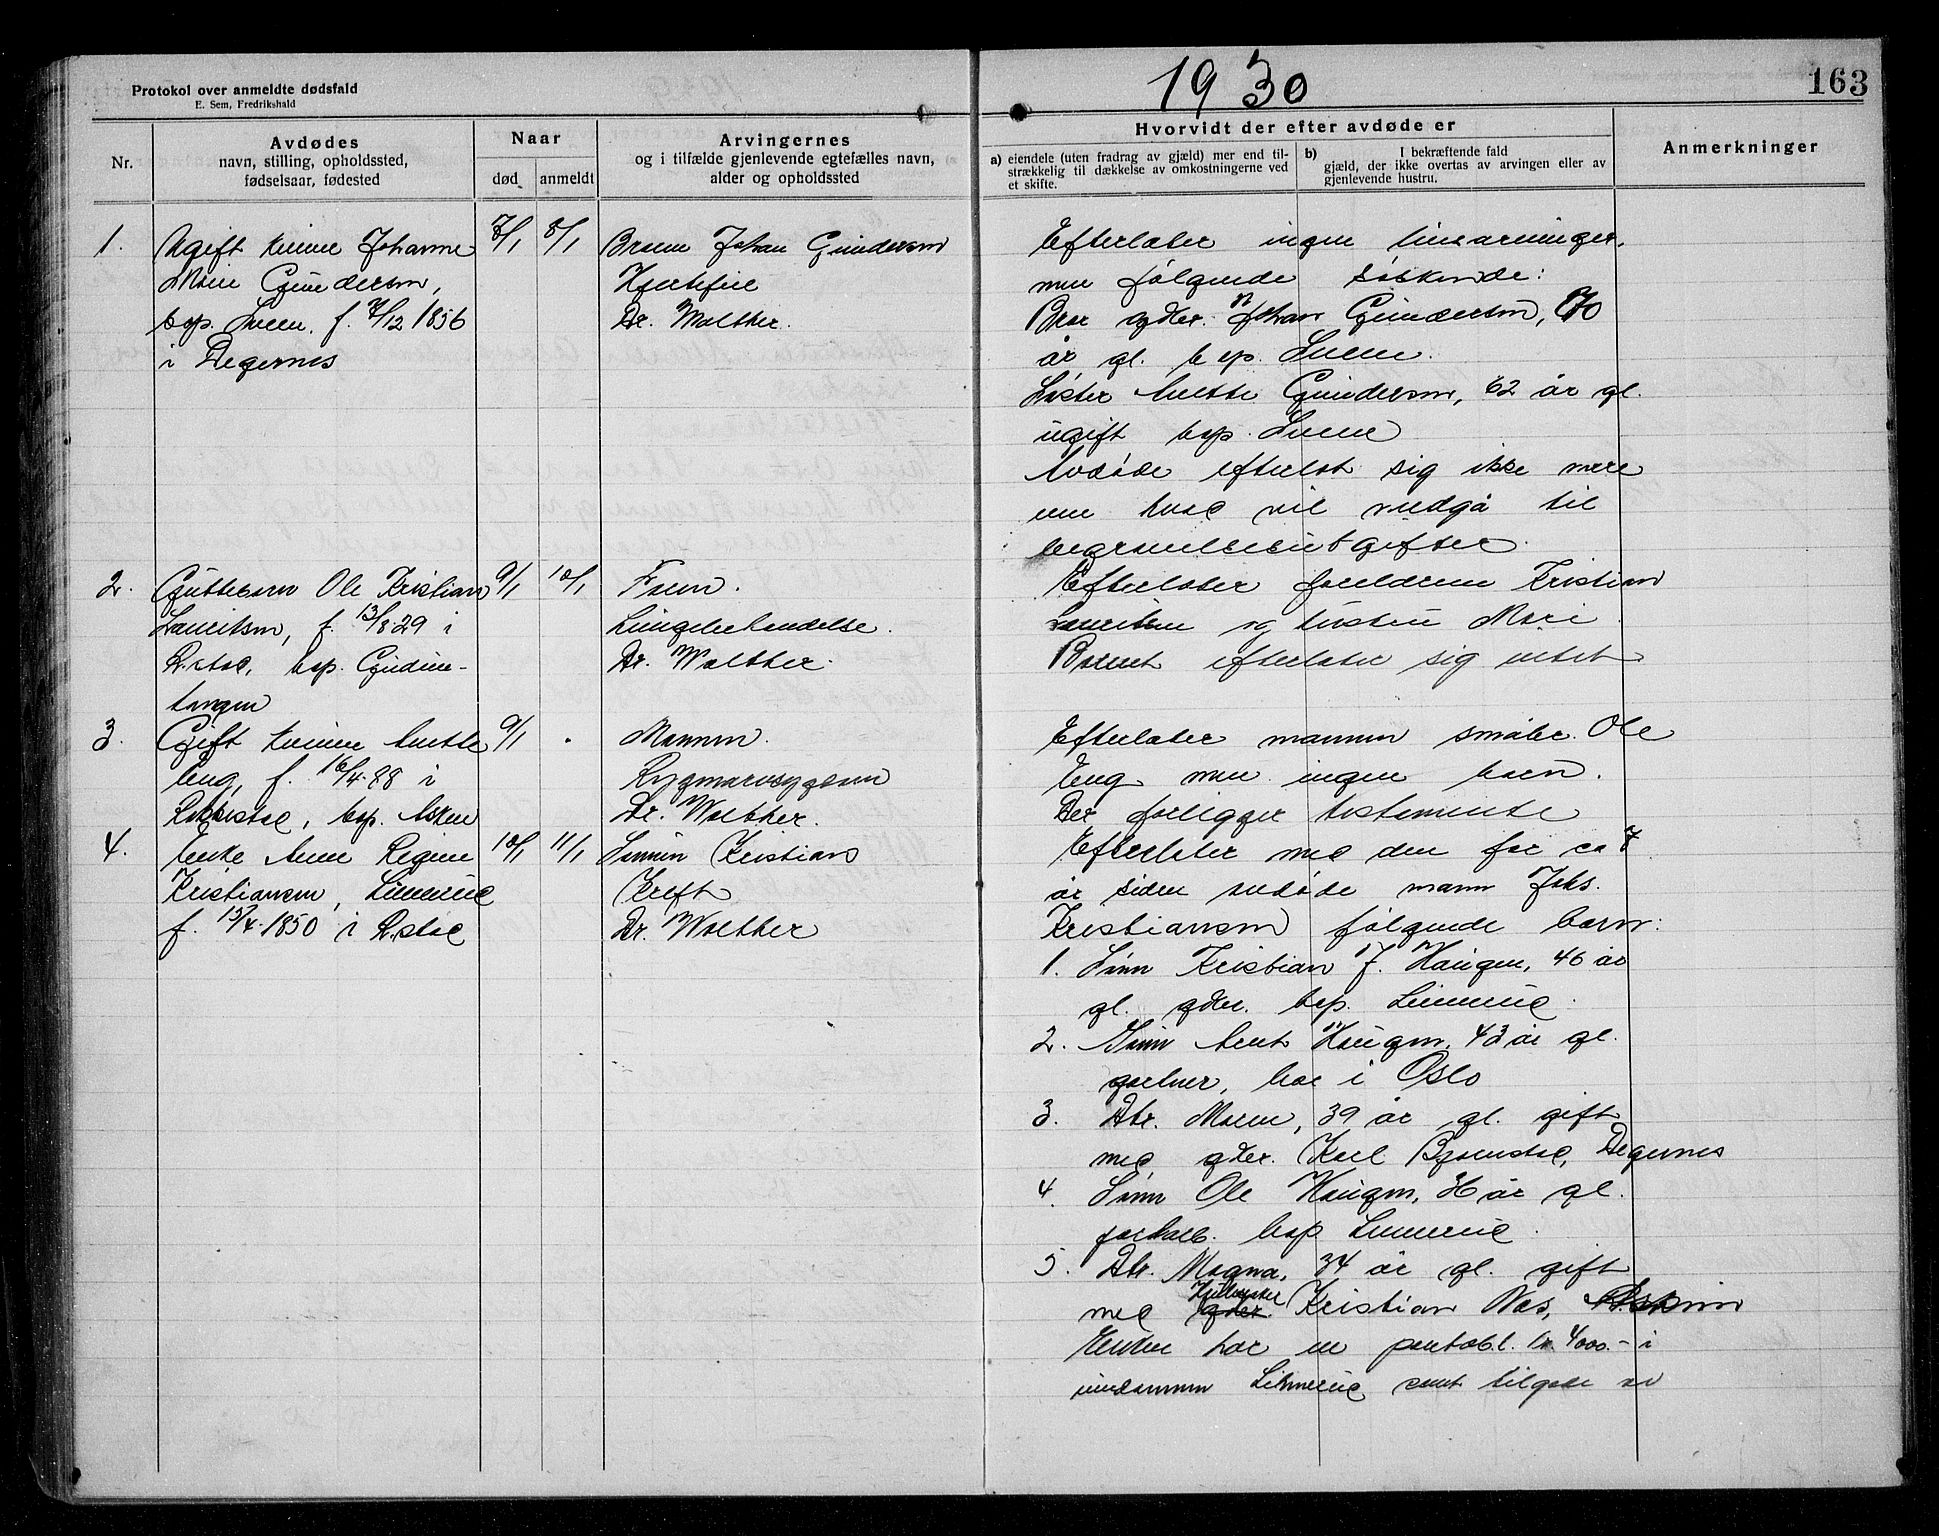 Protokol over anmeldte dødsfald
E. Sem, Fredrikshald
1930
163
Nr.
Avdødes
navn, stilling, opholdssted,
fødselsaar, fødested
Naar
død
anmeldt
Arvingernes
og i tilfælde gjenlevende egtefælles navn,
alder og opholdssted
Hvorvidt der efter avdøde er
a) eiendele (uten fradrag av gjæld) mer end til-
strækkelig til dækkelse av omkostningerne ved
et skifte.
b) I bekræftende fald
gjæld, der ikke overtas av arvingen eller av
gjenlevende hustru.
Anmerkninger
1.
Ugift kvinne Johanne
Marie Gundersen,
bop. f. 7/12 1856
i Degernes
7/1
8/1
Broren Johan Gundersen
Hjertefeil
Dr. Walther.
Efterlater ingen livsarvinger,
men følgende søskende:
Bror gdbr. Johan Gundersen, 70
år gl. bop.
Søster Anette Gundersen, 62 år gl.
ugift bop.
Avdøde efterlot sig ikke mere
enn hvad vil medgå til
begravelsesutgifter.
2.
Guttebarn Ole Kristian
Lauritsen, f. 13/8 29 i
R.stad, bop.
tangen
9/1
10/1
Faren.
Lungebetendelse.
Dr. Walther.
Efterlater foreldrene Kristian
Lauritsen og hustru Mari
Barnet efterlater sig intet
3.
Gift kvinne Anette
Eng, f. 16/4 88 i
Rakkestad, bop. Askim
9/1
Mannen.
Rygmarvsygdom
Dr. Walther.
Efterlater mannen småbr. Ole
Eng men ingen barn.
Der foreligger testamente
4.
Enke Anne Regine
Kristiansen,
f. 15/4 1850 i R.stad
10/1
11/1
Sønnen Kristian
Kreft
Dr. Walther
Efterlater med den for ca 7
år siden avdøde mann Johs.
Kristiansen følgende barn:
1. Sønn Kristian J. Haugen, 46 år
gl. gdbr. bop.
2. Sønn Arnt Haugen, 43 år gl.
gartner, bor i Oslo
3. Dtr. Maren, 39 år gl. gift
med gdbr. Karl Bjørnstad, Degernes
4. Sønn Ole Haugen, 36 år gl.
forhalb. bop
5. Dtr. Magna, 34 år gl. gift
med gdbr. Kristian Næs, Askim
Enken har en pantobl. kr. 4000.- i
eiendommen samt tilgode av